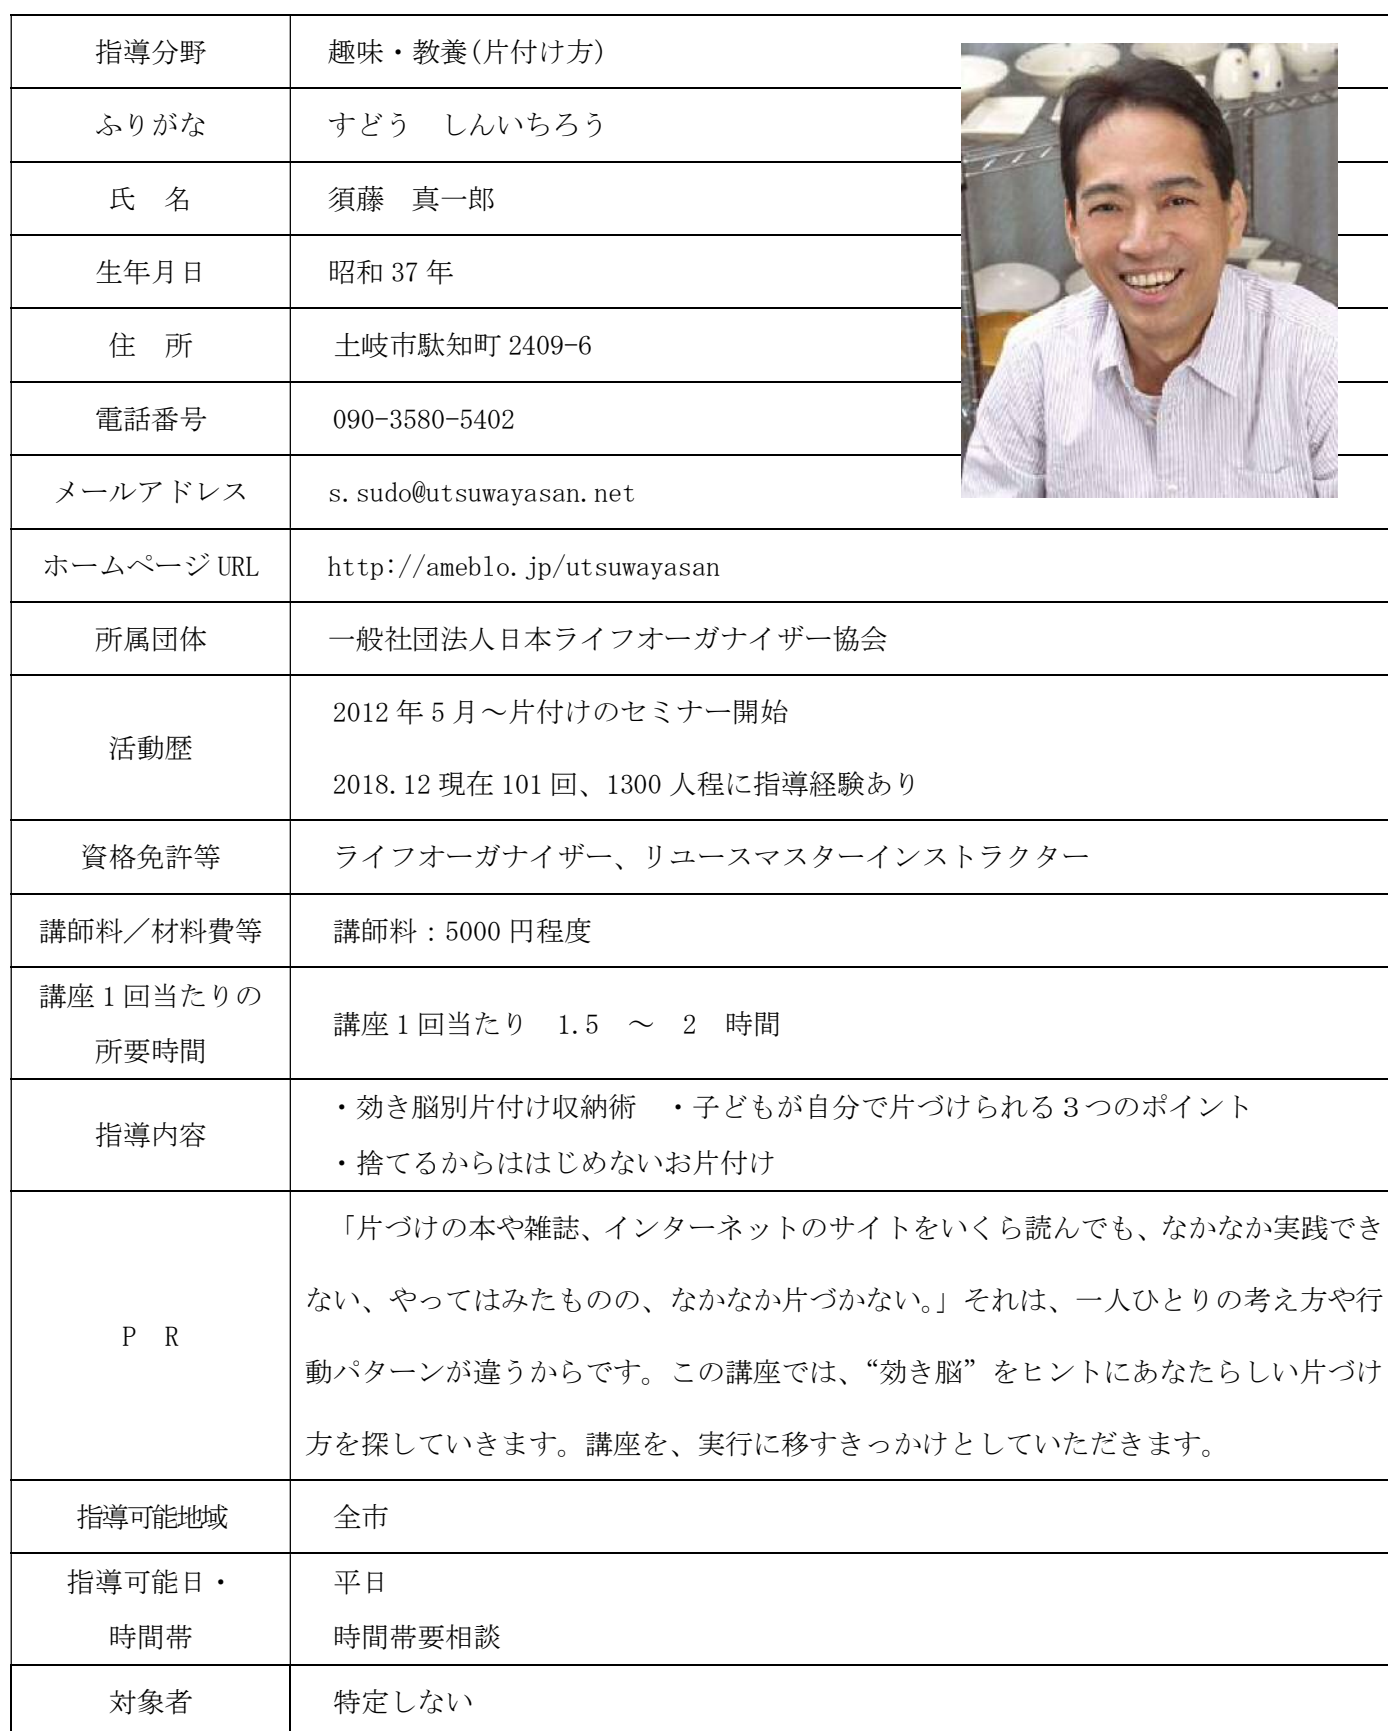 指導分野 趣味・教養(片付け方)
ふりがな すどう　しんいちろう
氏　名 須藤　真一郎
生年月日 昭和 37 年
住　所 土岐市駄知町 2409-6
電話番号 090-3580-5402
メールアドレス s.sudo@utsuwayasan.net
ホームページ URL http://ameblo.jp/utsuwayasan
所属団体 一般社団法人日本ライフオーガナイザー協会
活動歴
2012 年 5 月～片付けのセミナー開始
2018.12 現在 101 回、1300 人程に指導経験あり
資格免許等 ライフオーガナイザー、リユースマスターインストラクター
講師料／材料費等 講師料：5000 円程度
講座 1 回当たりの
所要時間
講座 1 回当たり　1.5　～　2　時間
指導内容
・効き脳別片付け収納術　・子どもが自分で片づけられる３つのポイント
・捨てるからははじめないお片付け
P　R
「片づけの本や雑誌、インターネットのサイトをいくら読んでも、なかなか実践でき
ない、やってはみたものの、なかなか片づかない。」それは、一人ひとりの考え方や行
動パターンが違うからです。この講座では、“効き脳”をヒントにあなたらしい片づけ
方を探していきます。講座を、実行に移すきっかけとしていただきます。
指導可能地域 全市
指導可能日・
時間帯
平日
時間帯要相談
対象者 特定しない